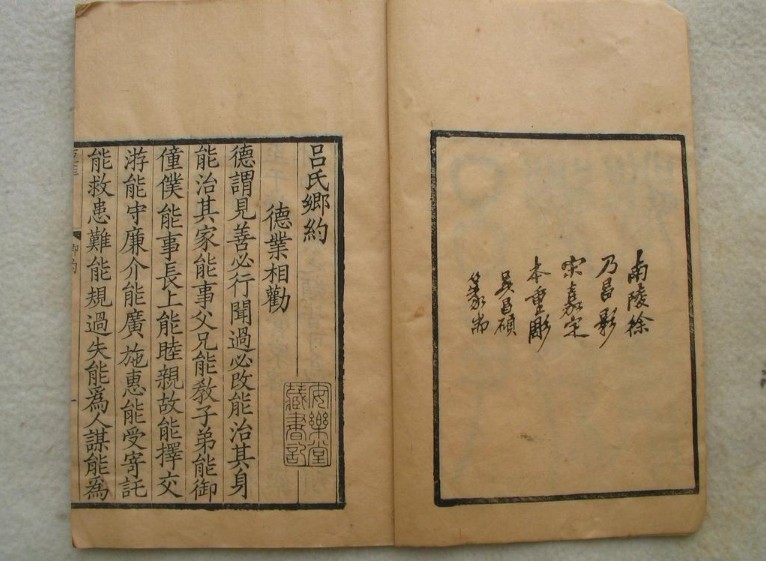 南陵徐
乃昌影
宋嘉定
本重彫
吳昌碩
篆耑
呂氏鄉約
德業相勸
德謂見善必行聞過必改能治其身
能治其家能事父兄能敎子弟能御
僮僕能事長上能睦親故能擇交
游能守廉介能廣施惠能受寄託
能救患難能規過失能爲人謀能爲
安樂堂
藏書記